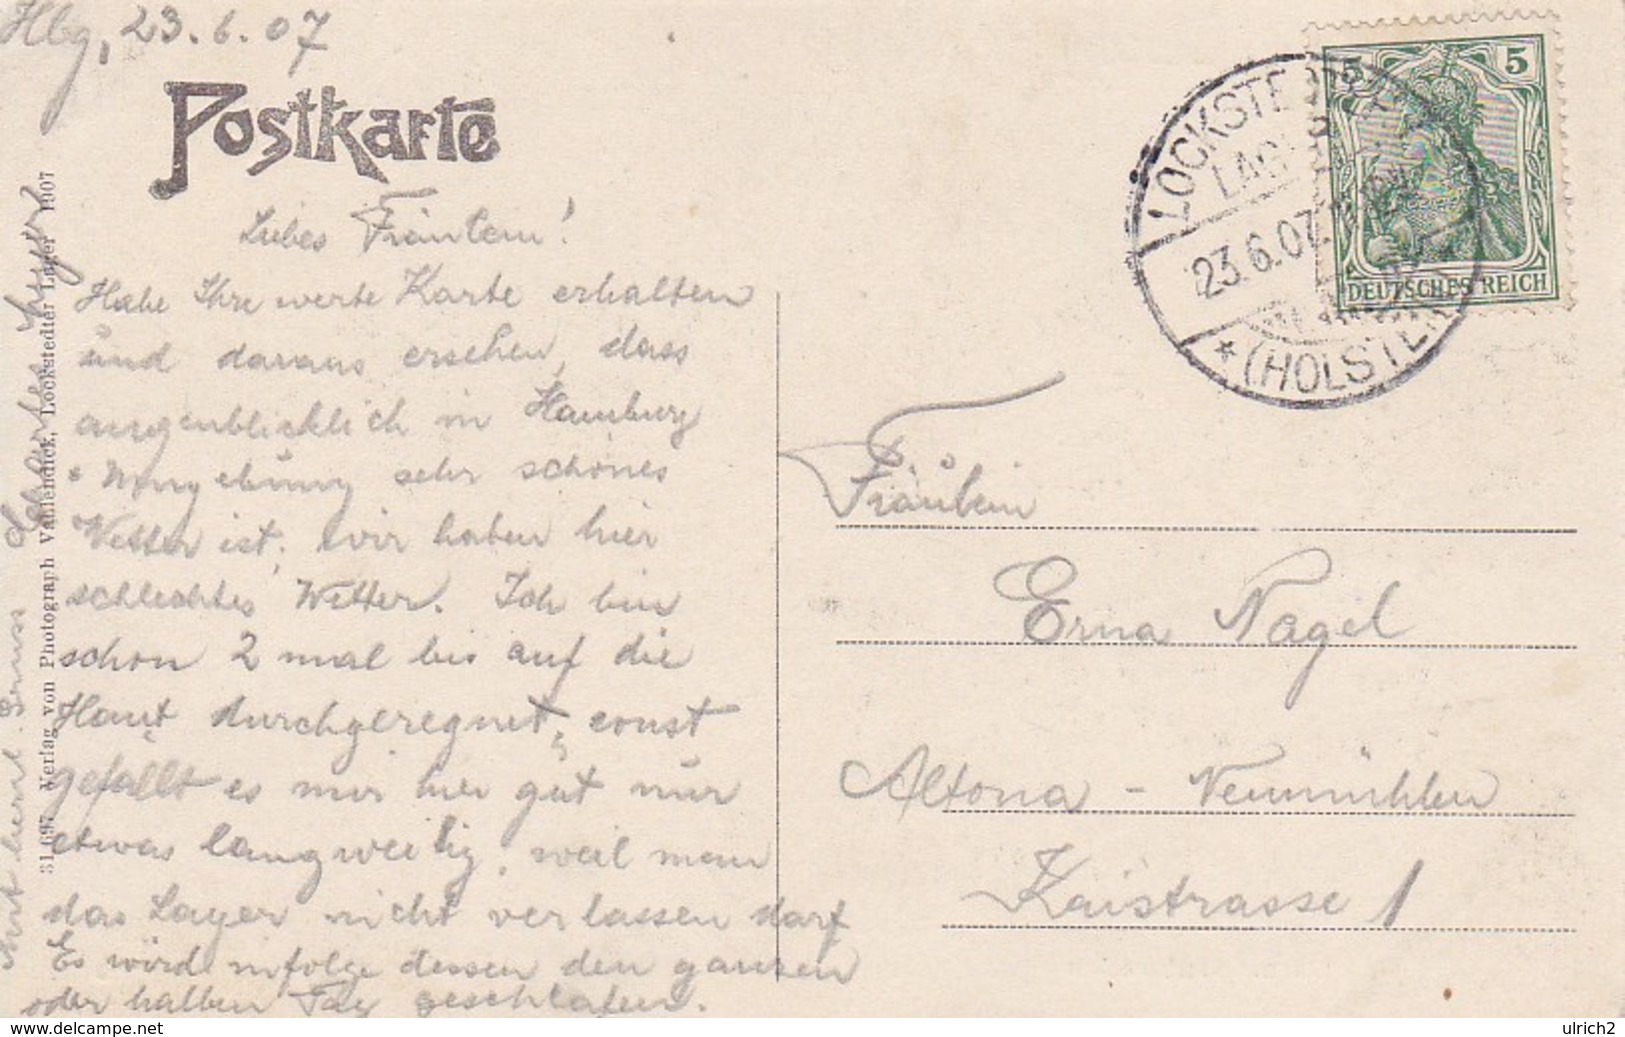 Hbg, 23.6.07
Postkarte
Liebes Fräulein!
Habe Ihre werte Karte erhalten
und daraus ersehen, dass
augenblicklich in Hamburg
+ Umgebung sehr schönes
Wetter ist, wir haben hier
schlechtes Wetter. Ich bin
schon 2 mal bis auf die
Haut durchgeregnet, sonst
gefällt es mir hier gut nur
etwas langweilig, weil man
das Lager nicht verlassen darf
Es wird infolge dessen den ganzen
oder halben Tag geschlafen.
herzl. Gruss
31697 Verlag von Photograph Vahlendick, Lockstedter Lager 1907
5 5
DEUTSCHES REICH
LOCKSTEDTER
LAGER
23.6.07.
* (HOLSTEIN
Fräulein
Erna Nagel
Altona - Neumühlen
Kaistrasse 1
delcampe.net
ulrich2